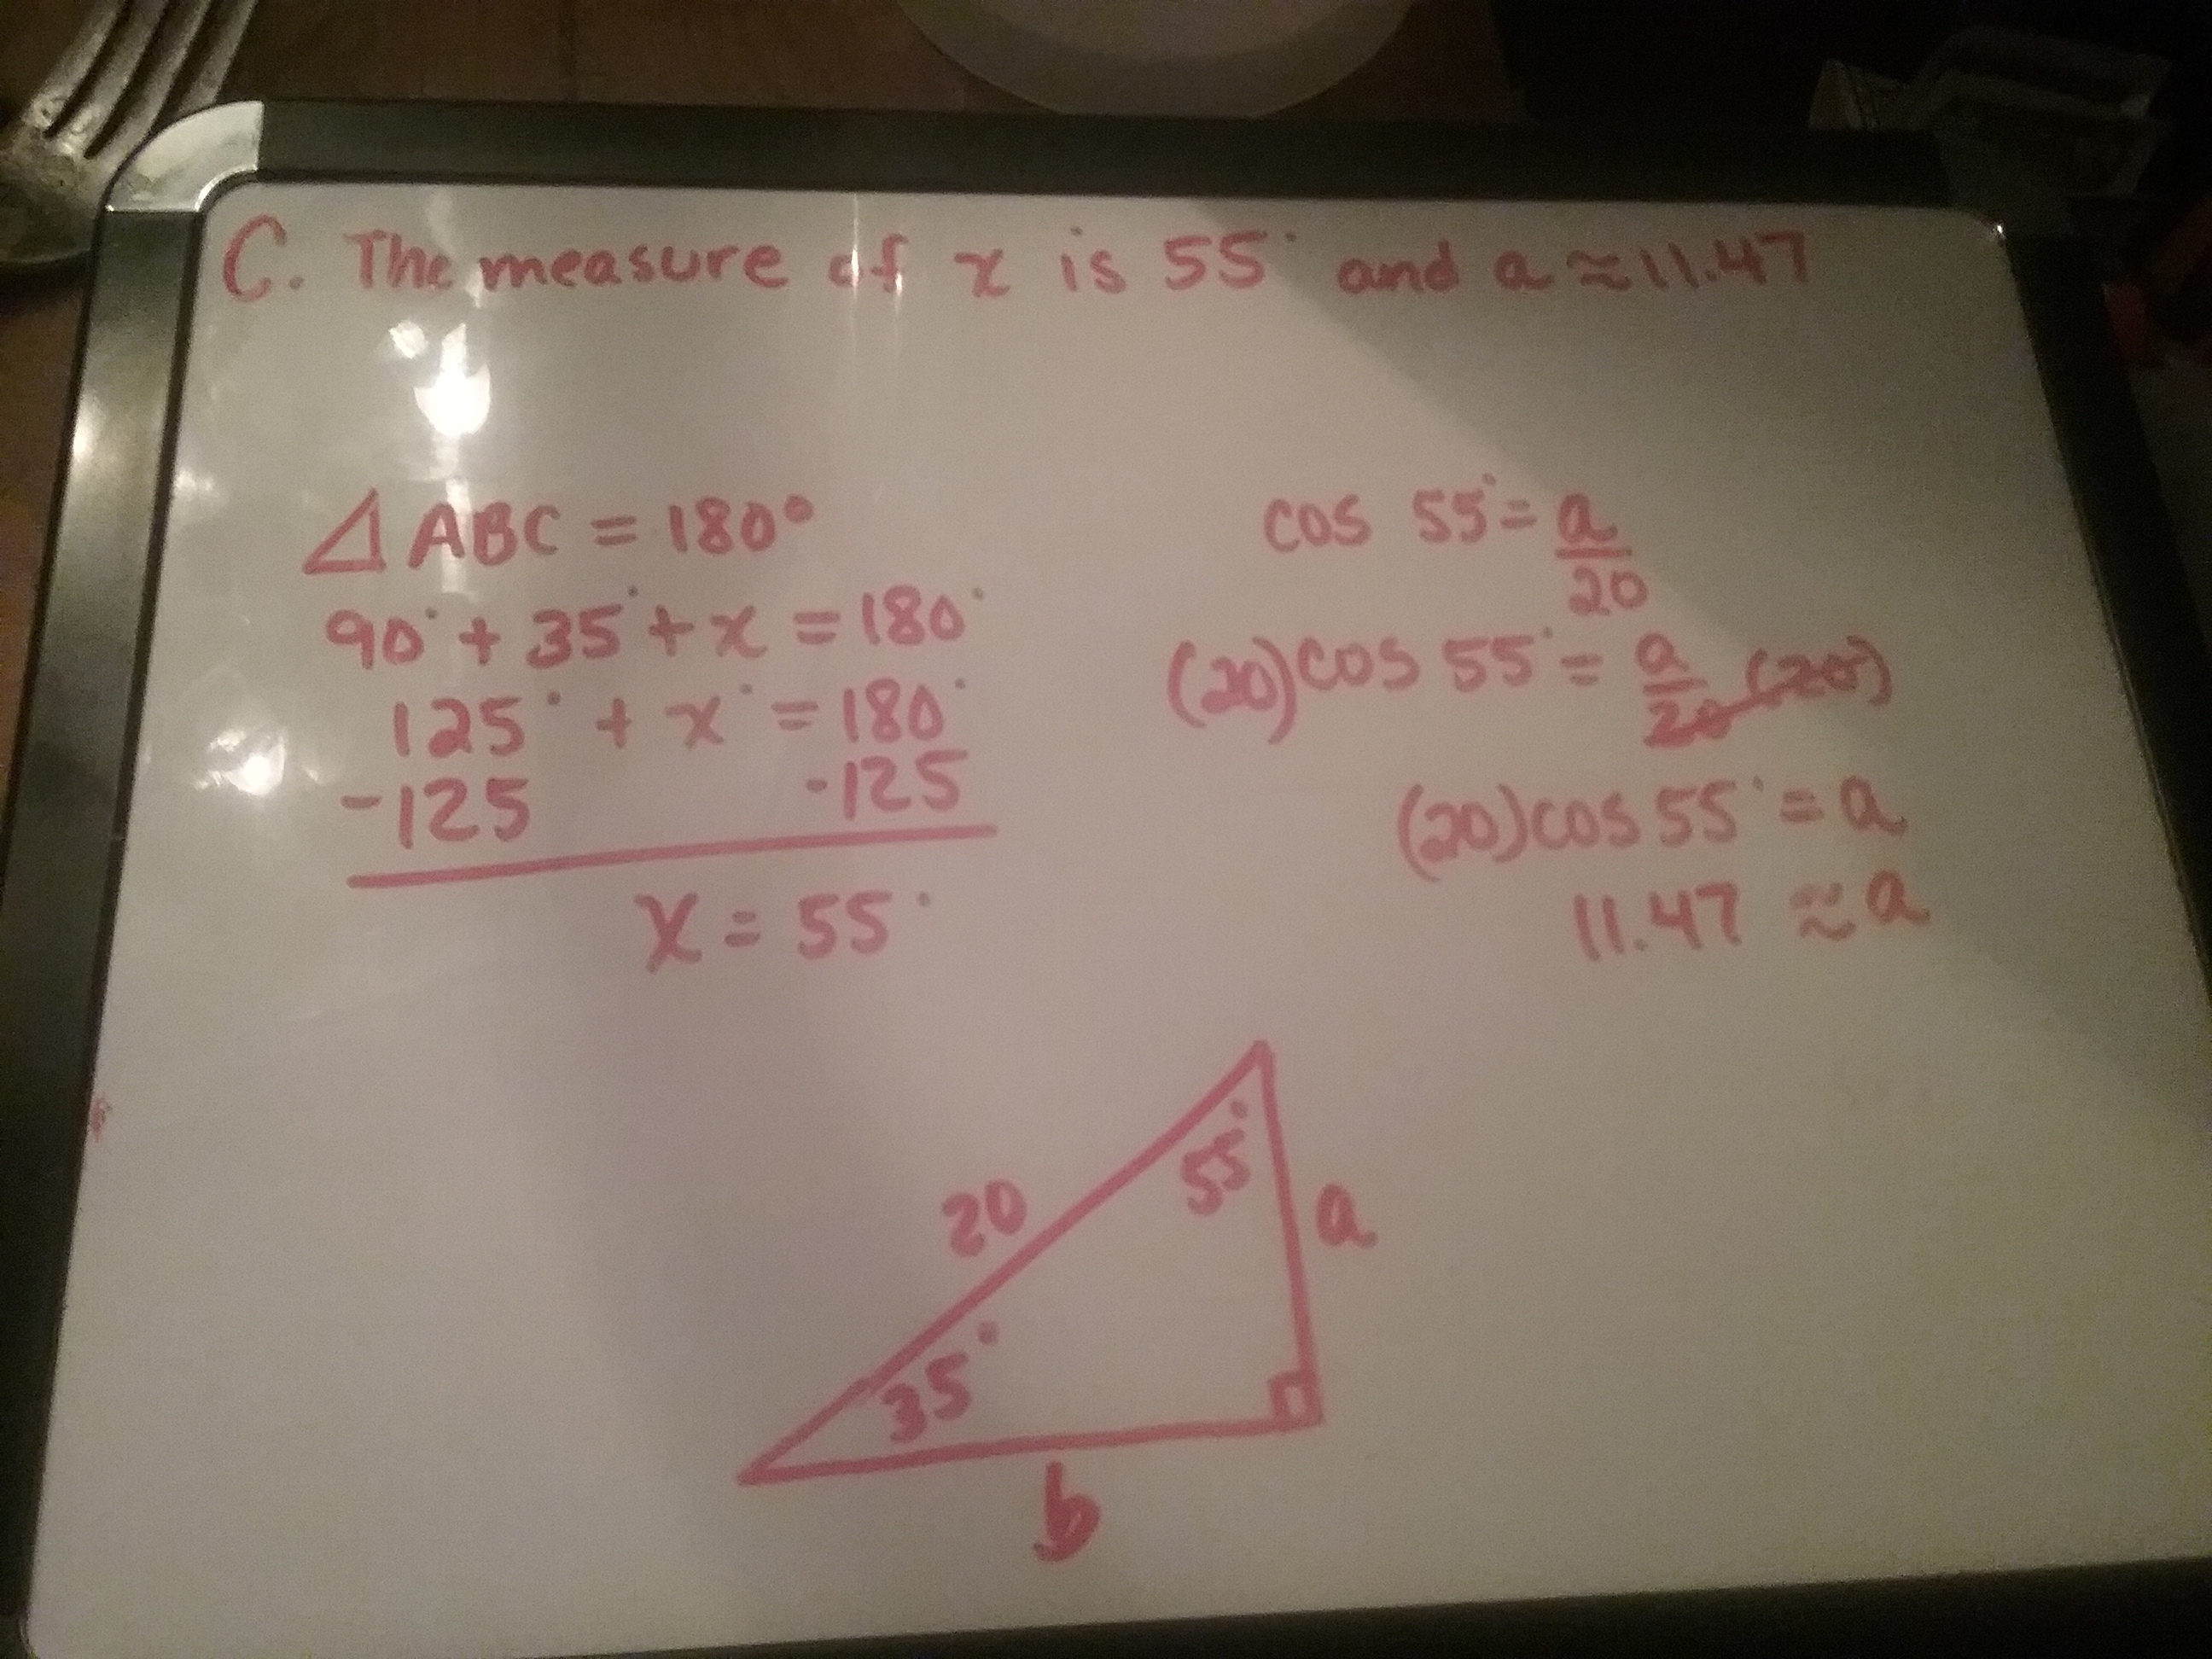 C. The measure of x is 55° and a ≈ 11.47
△ABC = 180°
90° + 35° + x = 180°
125° + x° = 180°
-125 -125
x = 55°
cos 55° = a/20
(20)cos 55° = a/20 (20)
(20)cos 55° = a
11.47 ≈ a
55°
20
a
35°
b